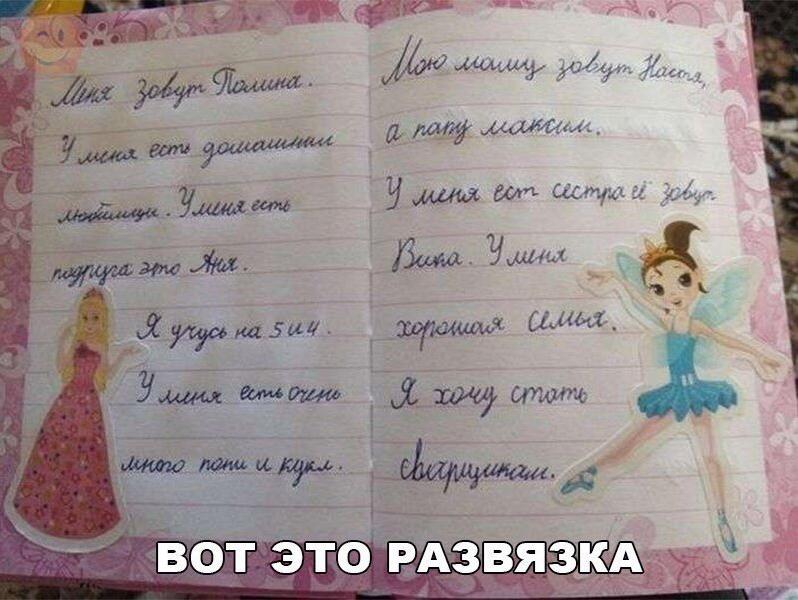 Меня зовут Полина.
У меня есть домашнии
любимцы. У меня есть
подруга это Аня.
Я учусь на 5 и 4.
У меня есть очень
много пони и кукл.
Мою маму зовут Настя,
а папу максим.
У меня ест сестра её зовут
Вика. У меня
хорошая семья.
Я хочу стать
сварщиком.
ВОТ ЭТО РАЗВЯЗКА